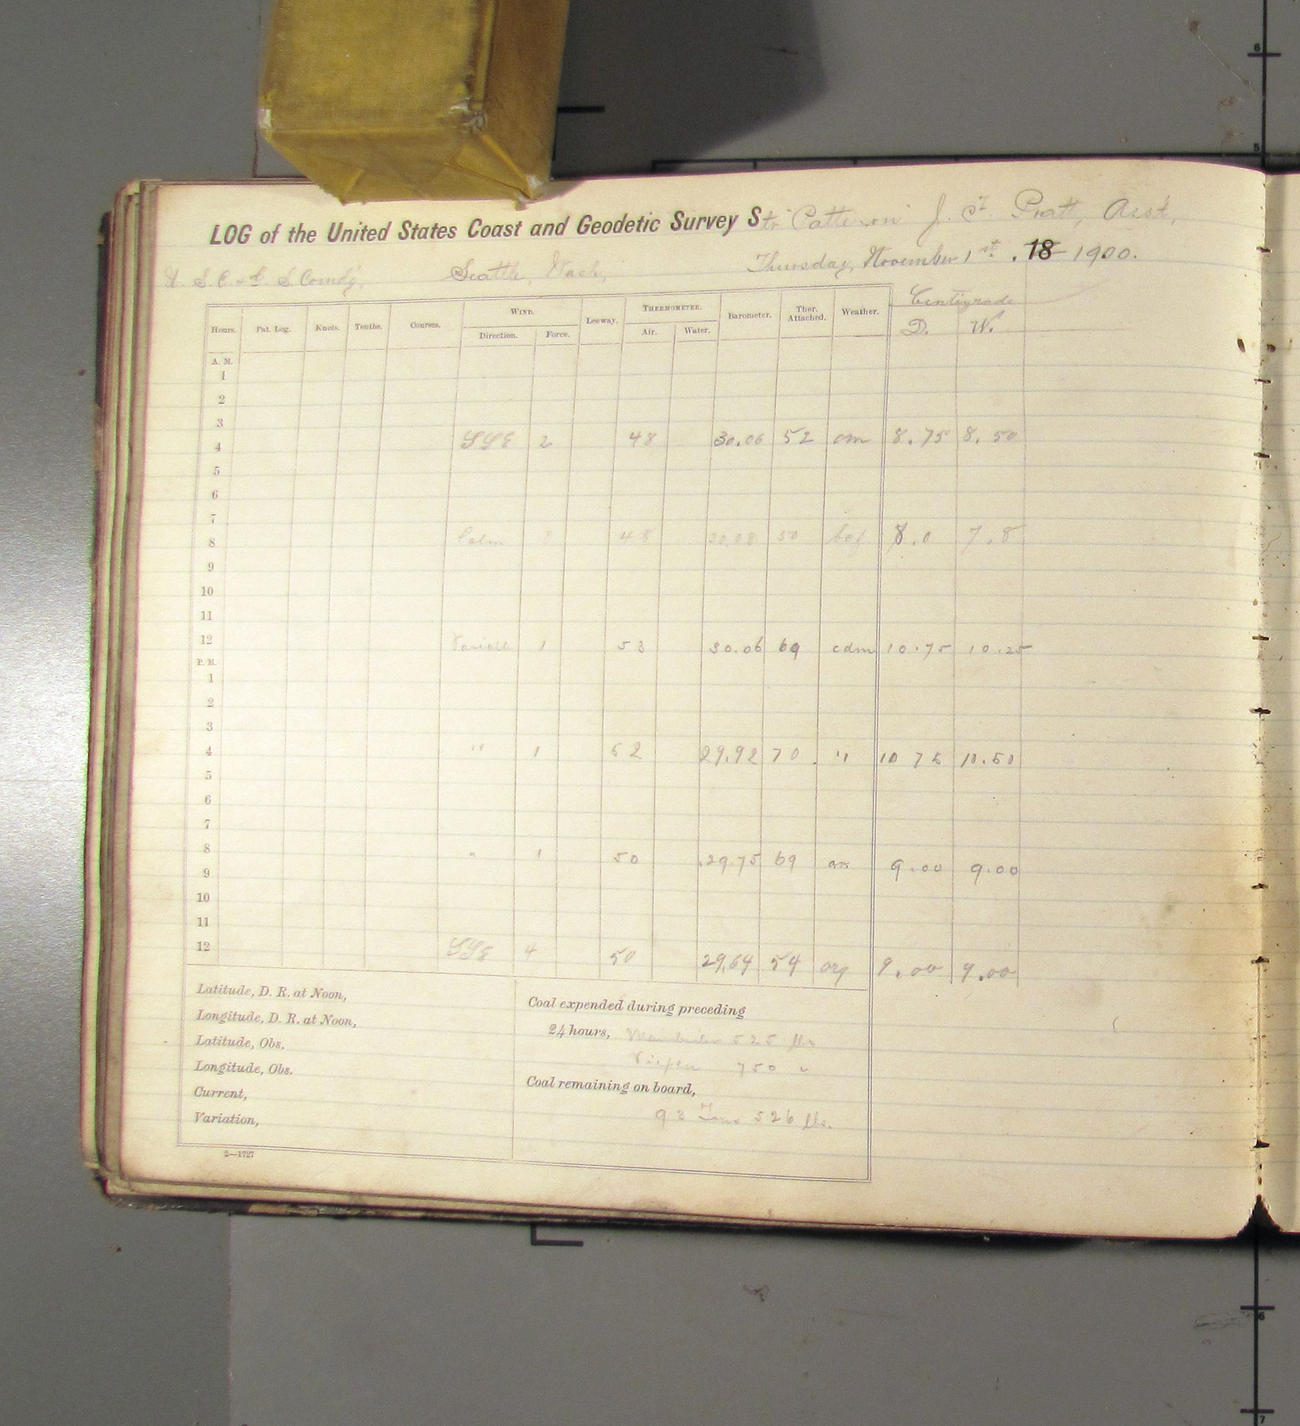 LOG of the United States Coast and Geodetic Survey Str "Patterson" J. F. Pratt, Asst,
U. S. C. & G. S. Comd'g, Seattle, Wash, Thursday, November 1st. 18 1900.
Hours. Pat. Log. Knots. Tenths. Courses. WIND. Leeway. THERMOMETER. Barometer. Ther. Attached. Weather. Centigrade
Direction. Force. Air. Water. D. W.
A. M.
1
2
3
4 SSE 2 48 30.06 52 om 8.75 8.50
5
6
7
8 Calm 0 48 30.08 50 bcf 8.0 7.8
9
10
11
12 Variable 1 53 30.06 69 cdm 10.75 10.25
P. M.
1
2
3
4 " 1 52 29.92 70 " 10 75 10.50
5
6
7
8 " 1 50 29.75 69 om 9.00 9.00
9
10
11
12 SSE 4 50 29.64 54 orq 9.00 9.00
Latitude, D. R. at Noon,
Longitude, D. R. at Noon,
Latitude, Obs.
Longitude, Obs.
Current,
Variation,
Coal expended during preceding
24 hours, 525 lbs
750 "
Coal remaining on board,
93 Tons 526 lbs.
2—1727
6
5
6
7